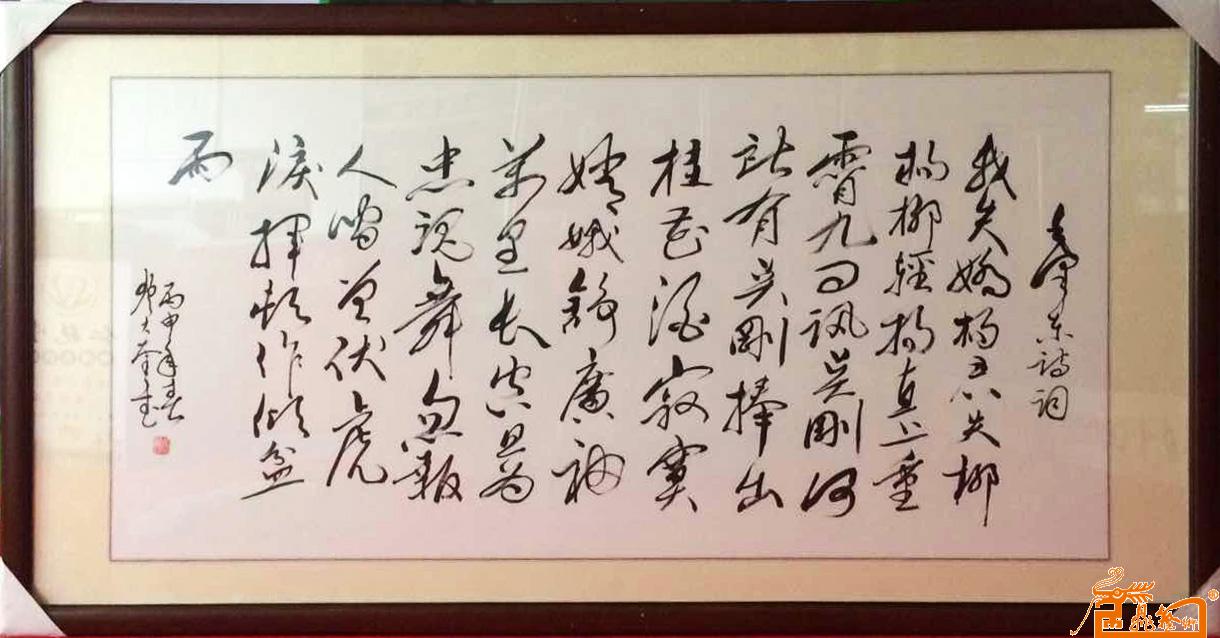 毛泽东诗词
我失嬌杨君失柳
杨柳輕杨直上重
霄九问讯吴剛何
所有吴剛捧出
桂花酒寂寞
嫦娥舒廣袖
万里长空且为
忠魂舞忽報
人间曾伏虎
淚揮頓作倾盆
雨
丙申年春